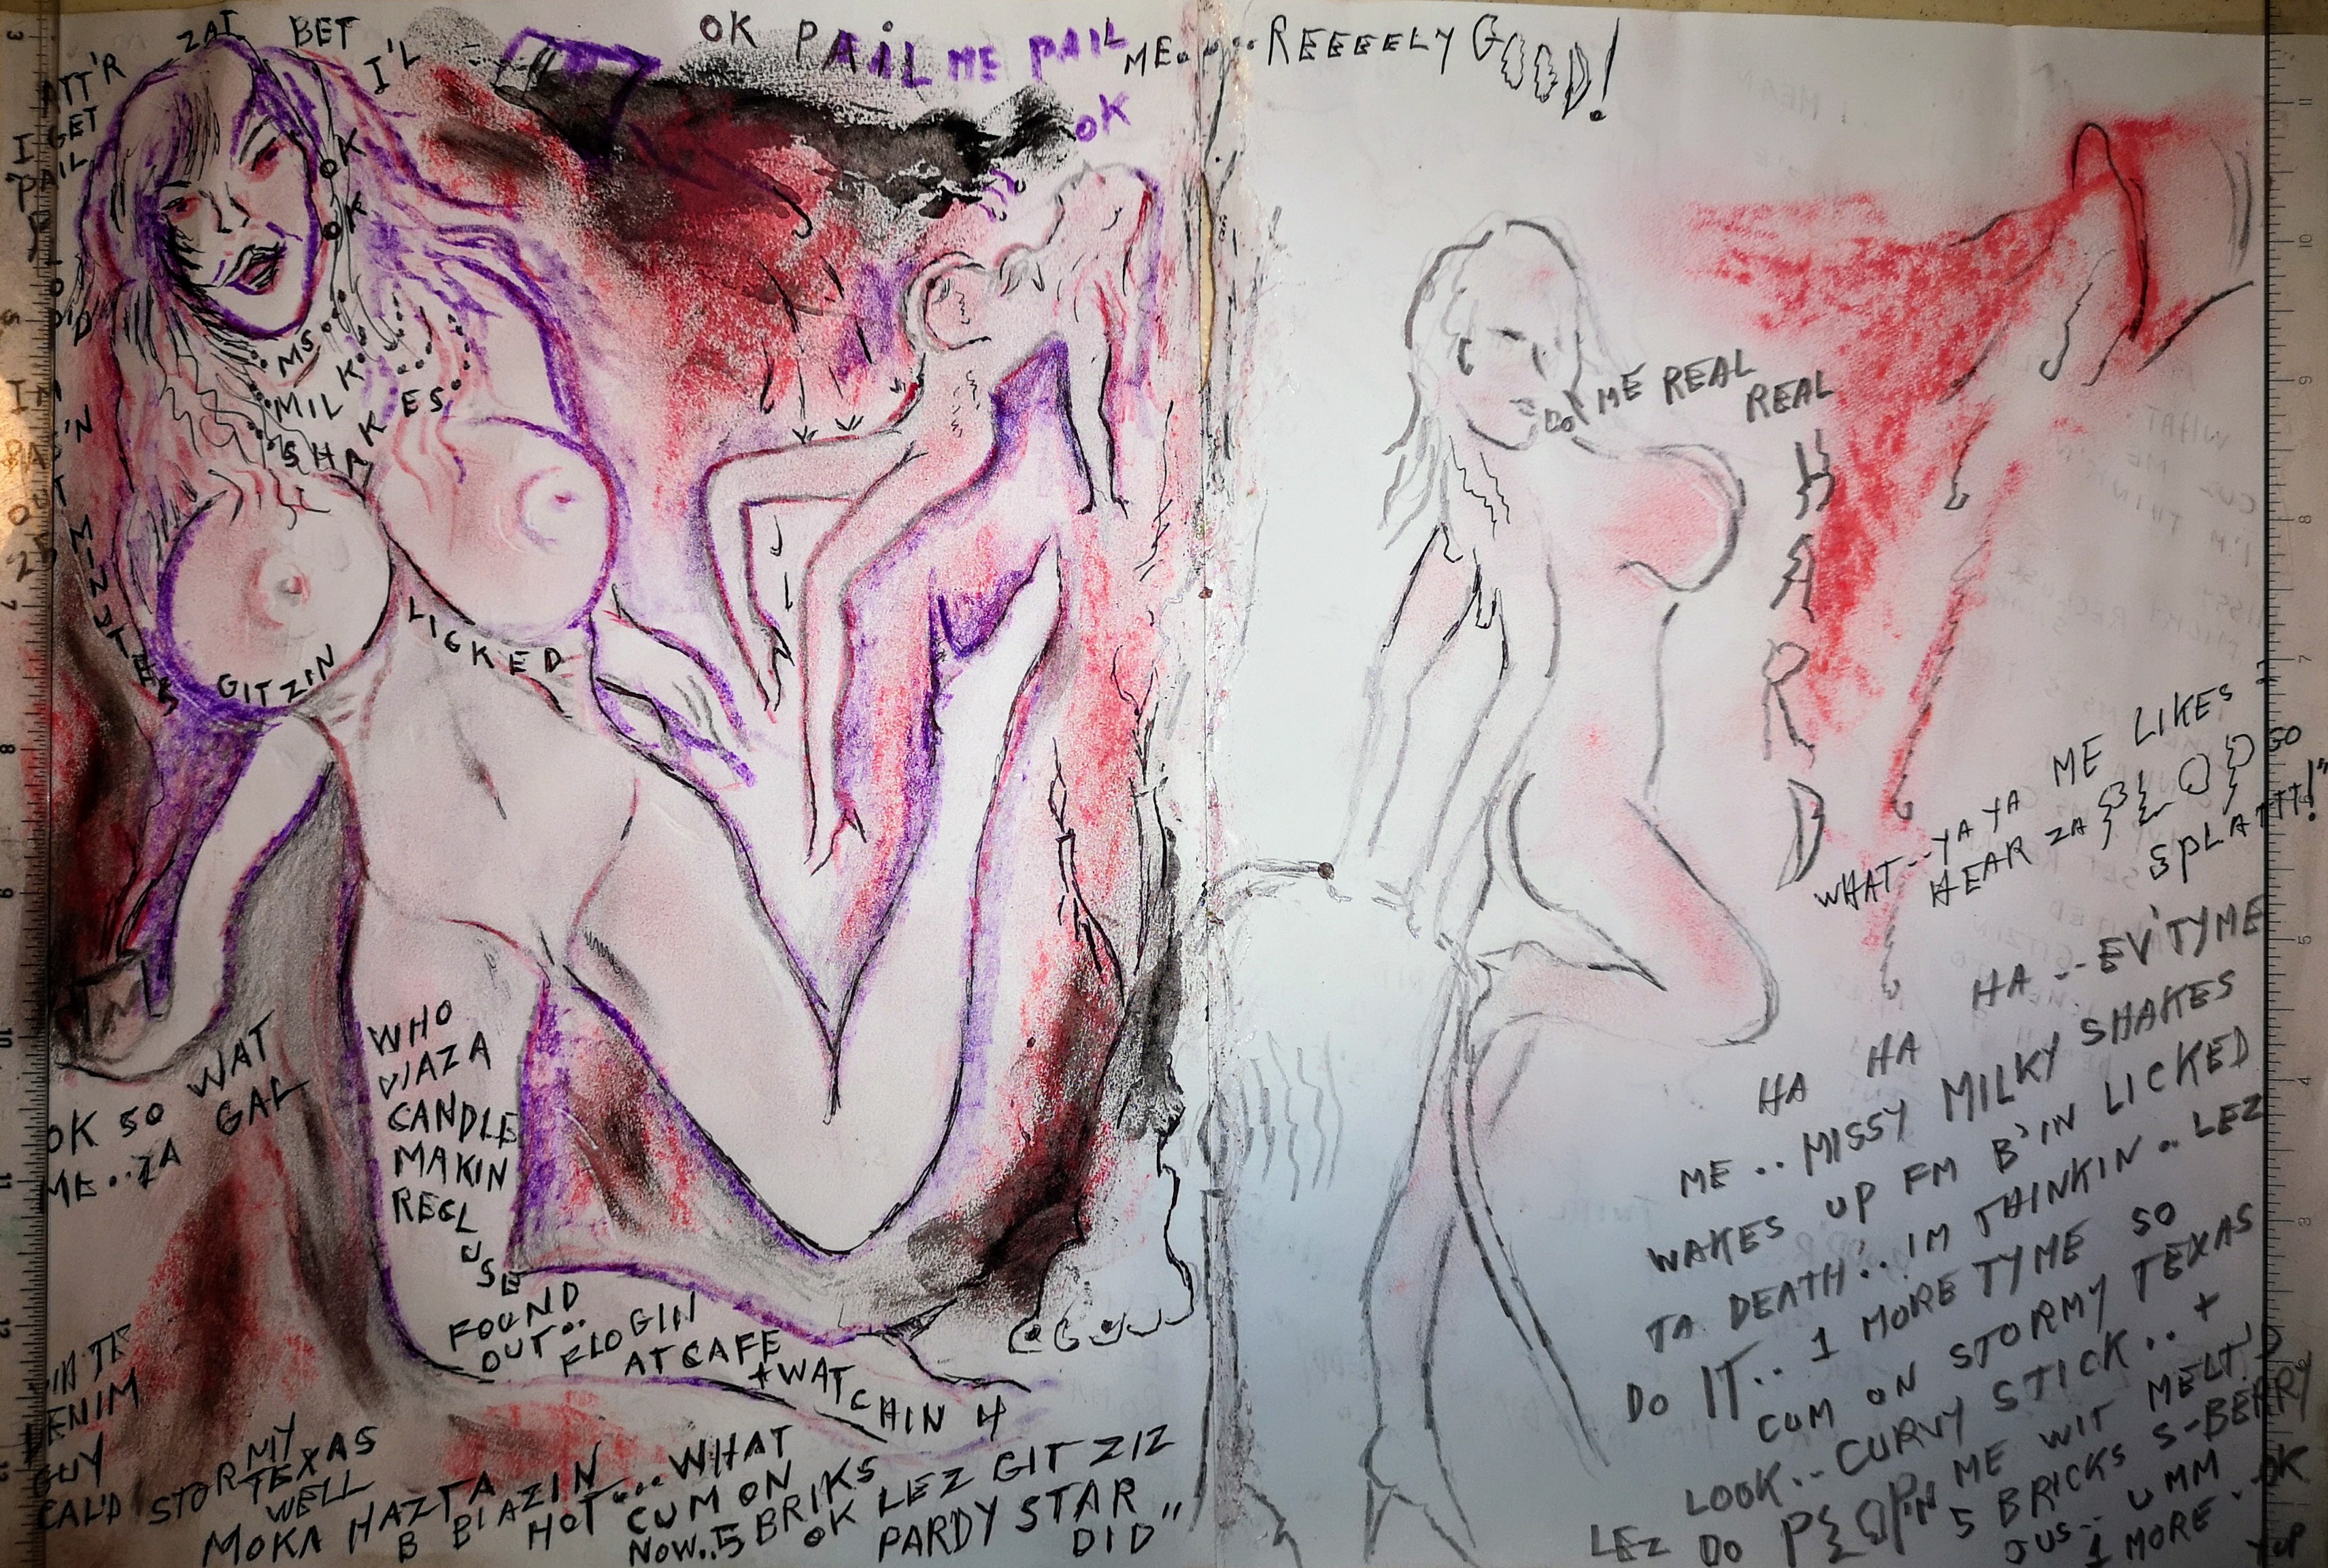 OK PAIL ME PAIL ME.....REEEELY GOOD!
OK
ZAT BET I'L
ATT'R
I GET
PAIL
OK
OK
MS.
MILK
SHAKES
GITZIN
LICKED
MINZSTERS
DO ME REAL
REAL
HARD
WHAT--YA YA ME LIKES
HEAR ZA PLOP GO
SPLATTT!"
WHO
DIAZA
CANDLE
MAKIN
RECLUSE
FOUND
OUT..
FLOGIN
AT CAFE
+WATCHIN 4
OK SO WAT
ME..ZA GAL
GUY
CAL'D STORMY
TEXAS
WELL
MOKA HAZTA
B BLAZIN
HOT...WHAT
CUM ON
NOW..5 BRIKS
OK LEZ GIT ZIZ
PARDY STAR
DID"
HA HA HA--EV'TYME
ME..MISSY MILKY SHAKES
WAKES UP FM B'IN LICKED
TA DEATH..IM THINKIN..LEZ
DO IT..1 MORE TYME SO
CUM ON STORMY TEXAS
LOOK..CURVY STICK..+
LEZ DO PLOP'N ME WIT MELT'D
5 BRICKS S-BERRY
JUS..UMM
1 MORE..OK
YUP